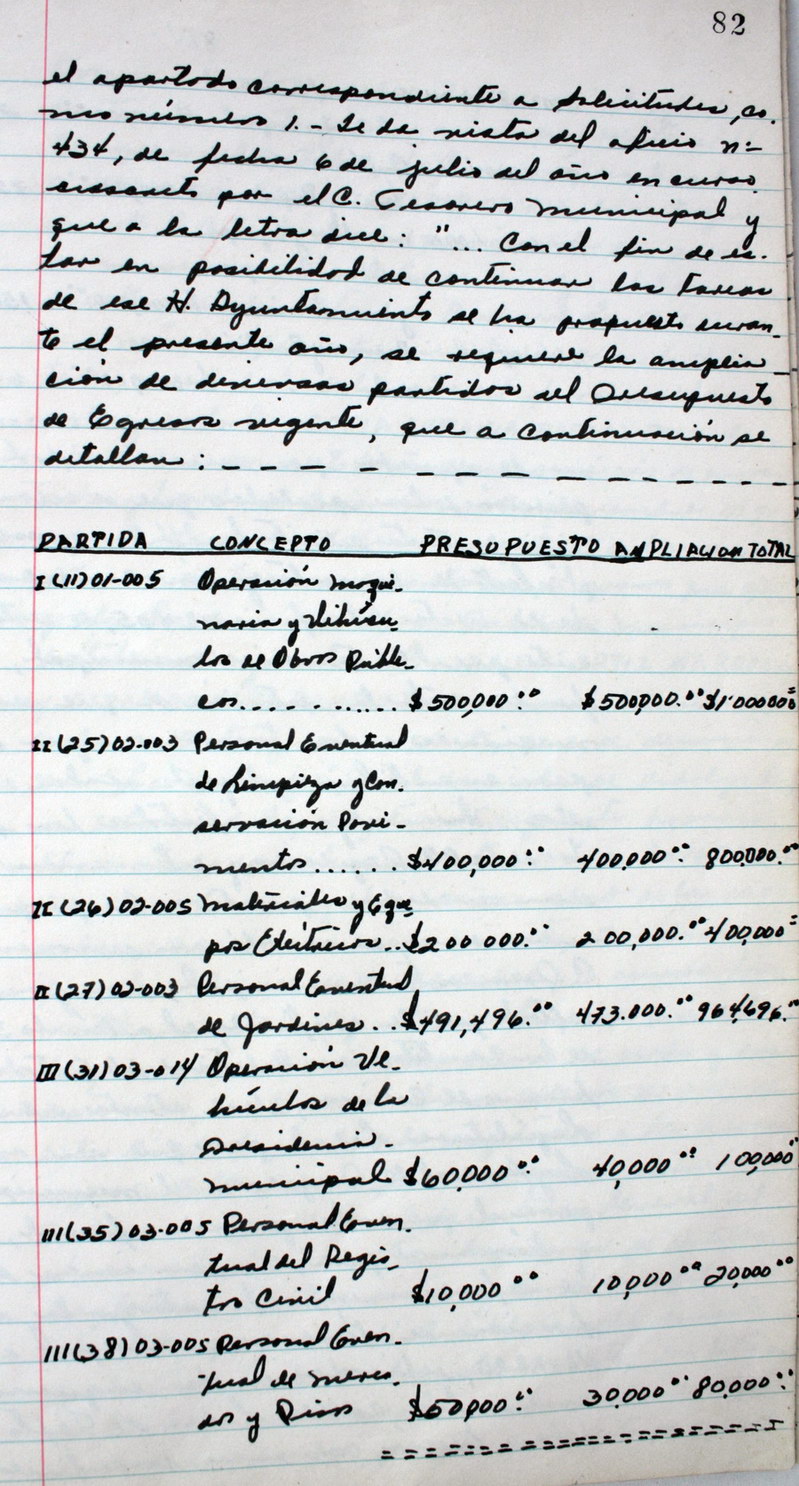 82
el apartado correspondiente a Solicitudes, co-
mo número 1.- Se da vista del oficio nº
434, de fecha 6 de julio del año en curso
suscrito por el C. Tesorero Municipal y
que a la letra dice: "... Con el fin de es-
tar en posibilidad de continuar las tareas
de ese H. Ayuntamiento se ha propuesto duran-
te el presente año, se requiere la amplia-
ción de diversas partidas del Presupuesto
de Egresos vigente, que a continuación se
detallan: - - - - - - - - - - - - - -
PARTIDA CONCEPTO PRESUPUESTO AMPLIACION TOTAL
I (11) 01-005 Operación maqui-
naria y Vehícu-
los de Obras Públi-
cas............ $500,000.00 $500,000.00 $1'000000=
II (25) 02-003 Personal Eventual
de Limpieza y Con-
servación Pavi-
mentos...... $400,000.00 400,000.00 800,000.00
II (26) 02-005 Materiales y Equi-
pos Eléctricos.. $200 000.00 200,000.00 400,000=
II (27) 02-003 Personal Eventual
de Jardines... $491,496.00 473.000.00 964,696.00
III (31) 03-014 Operación Ve-
hículos de la
Presidencia
Municipal $60,000.00 40,000.00 100,000
III (35) 03-005 Personal Even-
tual del Regis-
tro Civil $10,000.00 10,000.00 20,000.00
III (38) 03-005 Personal Even-
tual de Merca-
dos y Pisos $50,000.00 30,000.00 80,000.00
= = = = = = = = = = = = = = = =